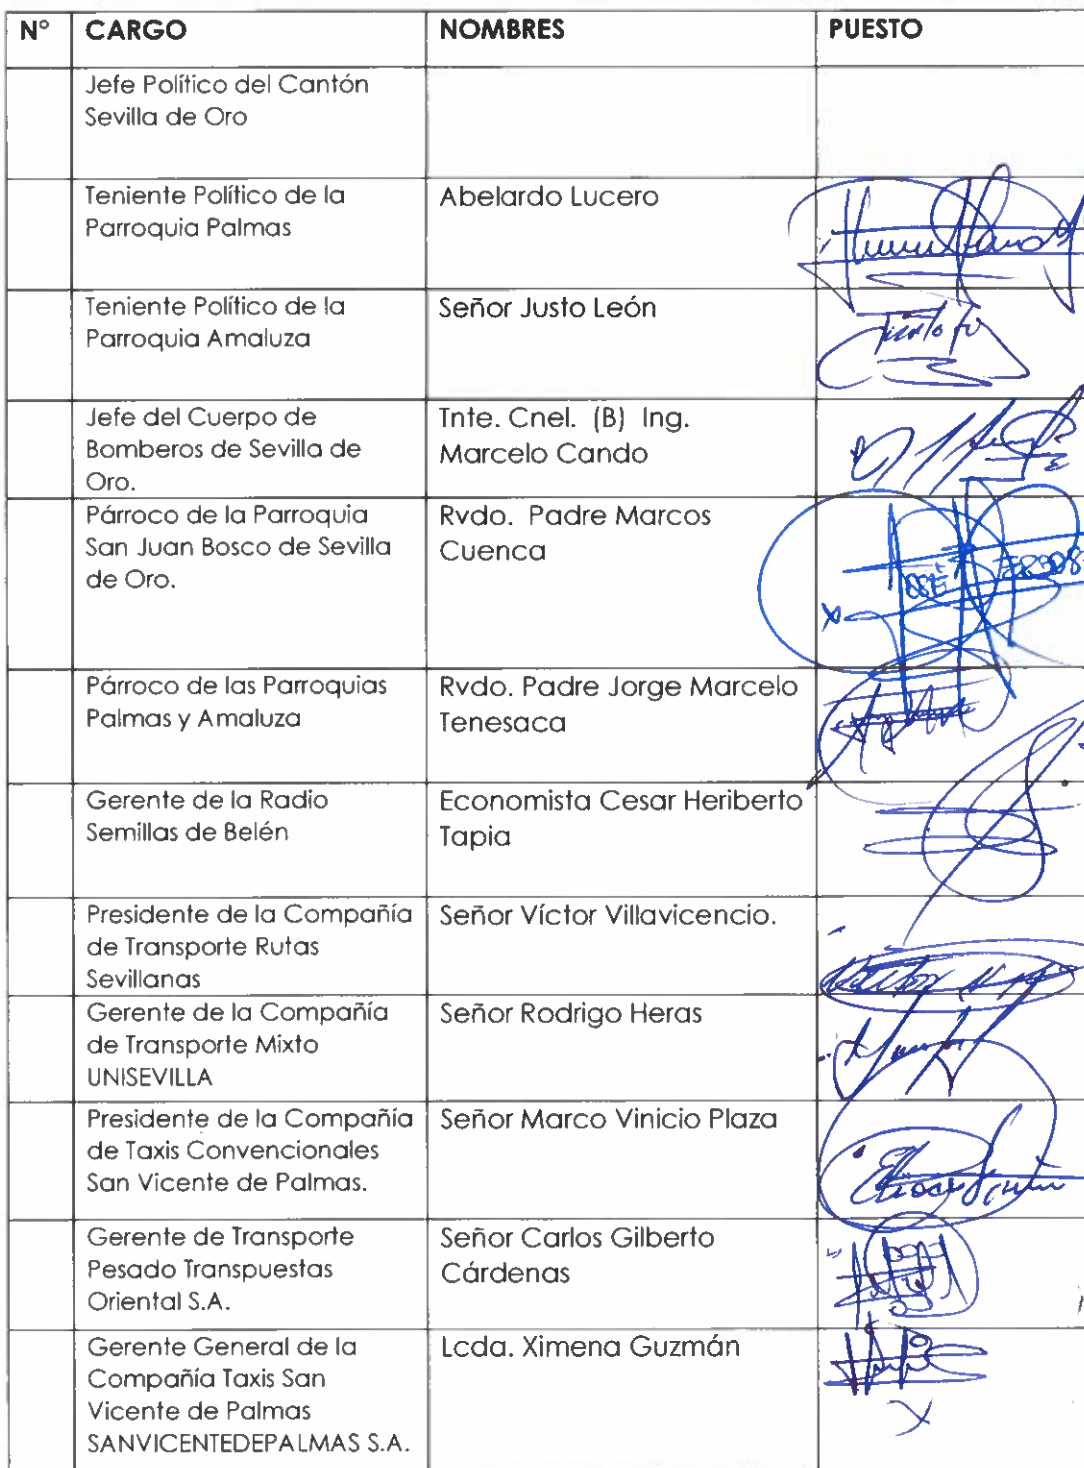 N° CARGO NOMBRES PUESTO
Jefe Político del Cantón
Sevilla de Oro
Teniente Político de la
Parroquia Palmas
Abelardo Lucero
Teniente Político de la
Parroquia Amaluza
Señor Justo León
Jefe del Cuerpo de
Bomberos de Sevilla de
Oro.
Tnte. Cnel. (B) Ing.
Marcelo Cando
Párroco de la Parroquia
San Juan Bosco de Sevilla
de Oro.
Rvdo. Padre Marcos
Cuenca
Párroco de las Parroquias
Palmas y Amaluza
Rvdo. Padre Jorge Marcelo
Tenesaca
Gerente de la Radio
Semillas de Belén
Economista Cesar Heriberto
Tapia
Presidente de la Compañía
de Transporte Rutas
Sevillanas
Señor Víctor Villavicencio.
Gerente de la Compañía
de Transporte Mixto
UNISEVILLA
Señor Rodrigo Heras
Presidente de la Compañía
de Taxis Convencionales
San Vicente de Palmas.
Señor Marco Vinicio Plaza
Gerente de Transporte
Pesado Transpuestas
Oriental S.A.
Señor Carlos Gilberto
Cárdenas
Gerente General de la
Compañía Taxis San
Vicente de Palmas
SANVICENTEDEPALMAS S.A.
Lcda. Ximena Guzmán